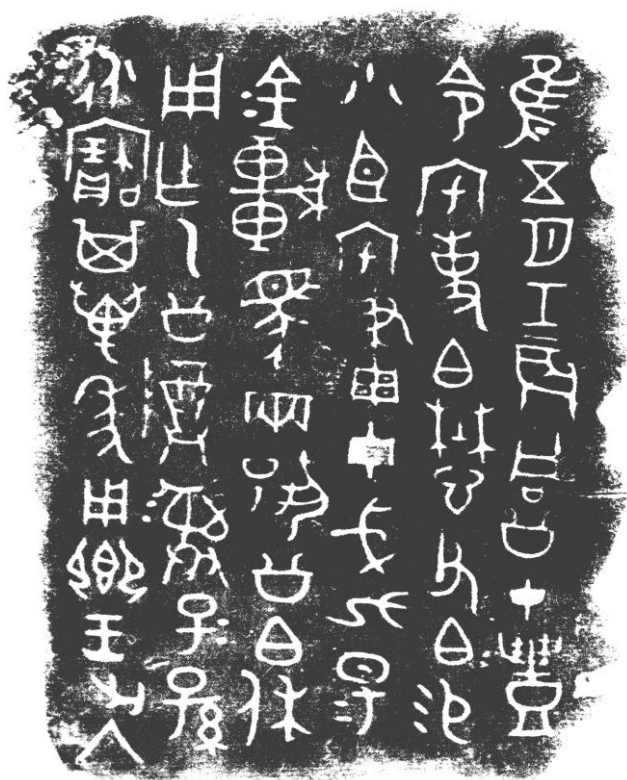 隹五月壬辰同公才豐
令宅事白懋父白易
小臣宅畫干戈九昜
金車馬兩揚公白休
用乍乙公尊彝子=孫
永寶其萬年用鄉王出入